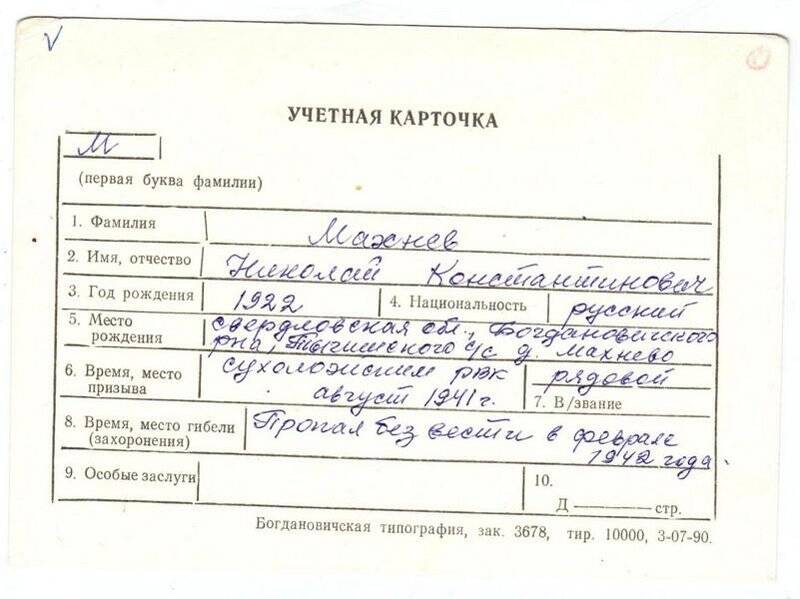 УЧЕТНАЯ КАРТОЧКА
М
(первая буква фамилии)
1. Фамилия Махнев
2. Имя, отчество Николай Константинович
3. Год рождения 1922 4. Национальность русский
5. Место рождения свердловская обл., Богдановичского
р-на, Тыгишского с/с д. Махнево
6. Время, место призыва сухоложским РВК
август 1941 г.
рядовой
7. В/звание
8. Время, место гибели (захоронения) Пропал без вести в феврале
1942 года.
9. Особые заслуги
10.
Д ——— стр.
Богдановичская типография, зак. 3678, тир. 10000, 3-07-90.